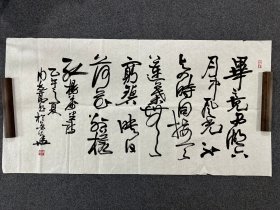 畢竟西湖六
月中風光不
與四時同接天
蓮葉無
窮碧映日
荷花别樣
紅楊萬里詩